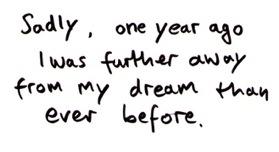 Sadly, one year ago
I was further away
from my dream than
ever before.